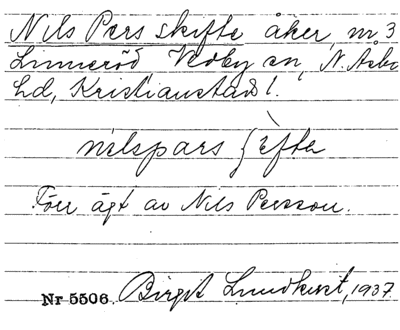 Nils Pers skifte åker, nr 3
Linneröd Vedby sn, N. Åsbo
hd, Kristianstad l.
nilspars ʃèfta
Förr ägt av Nils Persson.
Nr 5506. Birgit Lundkvist, 1937